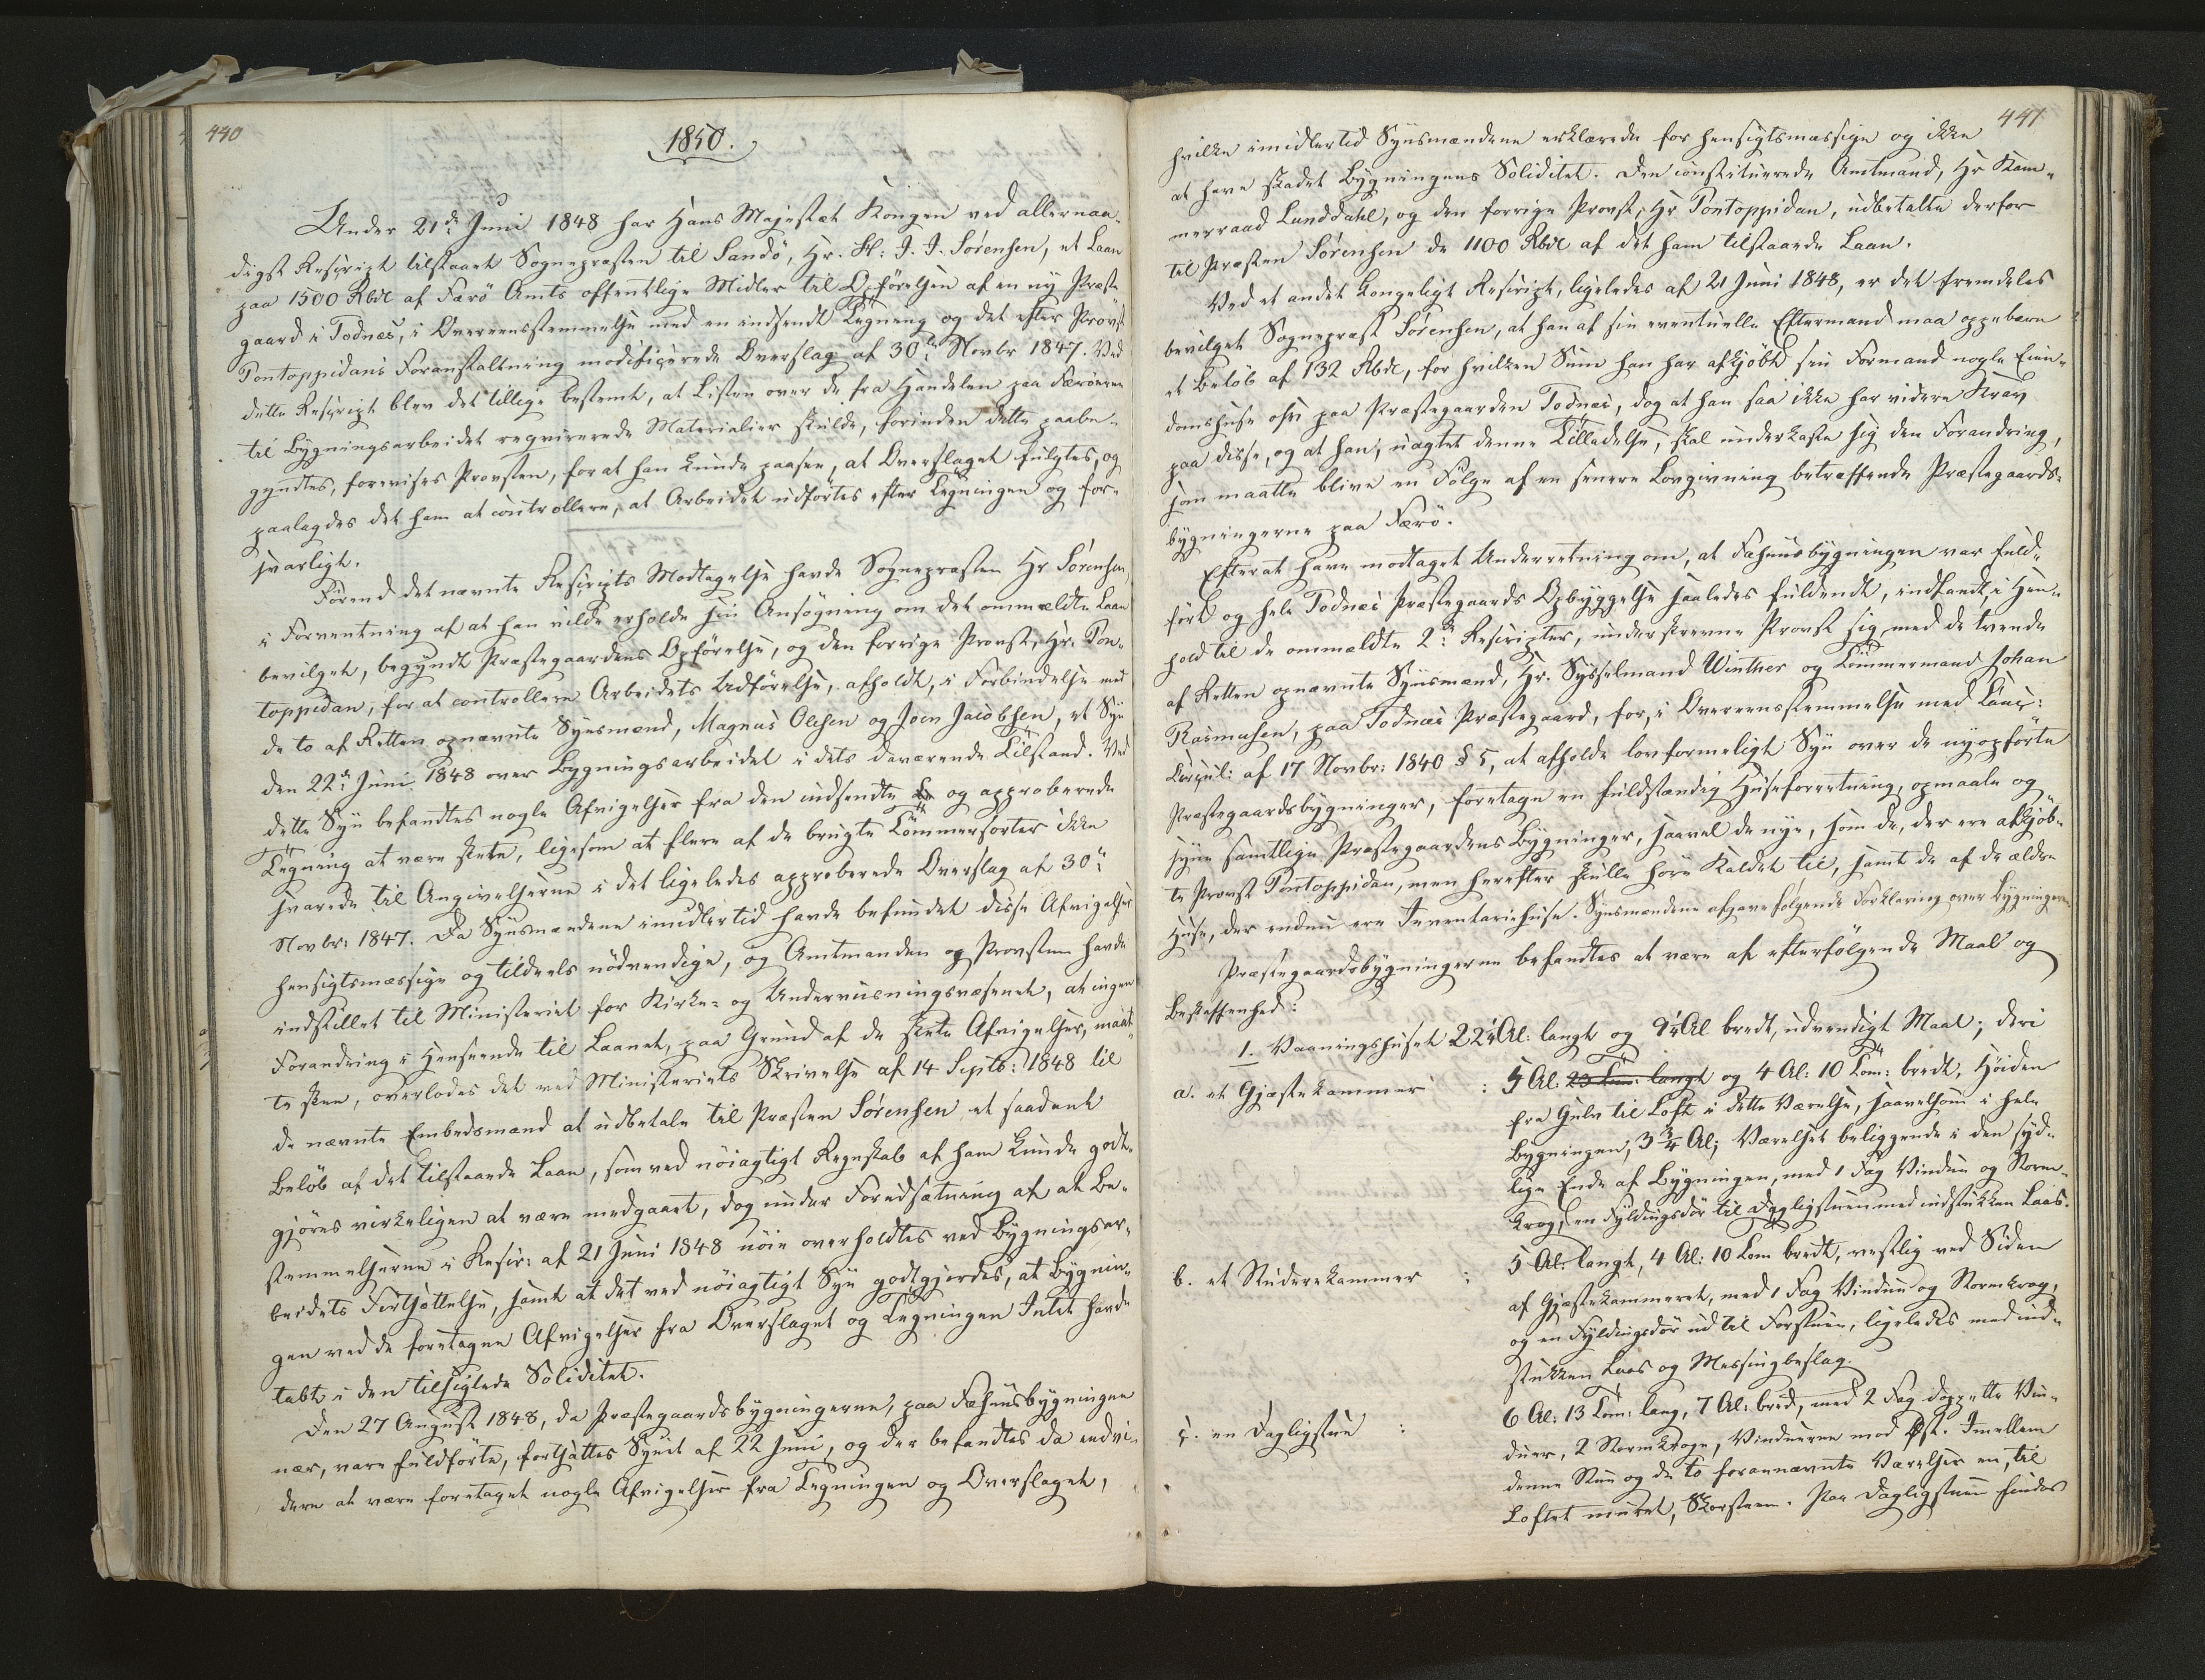 440
1850.
Under 21de Juni 1848 har Hans Majestæt Kongen ved allernaa-
digst Rescript tilstaaet Sognepræsten til Sandö, Hr. H: J. J. Sörensen, et Laan
paa 1500 Rbdl af Færö Amts offentlige Midler til Opförelsen af en ny Præste
gaard i Todnæs, i Overeensstemmelse med en indsendt Tegning og det efter Provst
Pontoppidans Foranstaltning modificerede Overslag af 30te Novbr 1847. Ved
dette Rescript blev det tillige bestemt, at Listen over de fra Handelen paa Færöerne
til Bygningsarbeidet reqvirerede Materialier skulde, forinden dette paabe-
gyndtes, forevises Provsten, forat han kunde paasee, at Overslaget fulgtes, og
paalagdes det ham at controllere, at Arbeidet udförtes efter Tegningen og for-
svarligt.
Förend det nævnte Rescripts Modtagelse havde Sognepræsten Hr Sörensen,
i Forventning af at han vilde erholde sin Ansögning om det ommældte Laan
bevilget, begyndt Præstegaardens Opförelse, og den forrige Provst, Hr. Pon-
toppidan, for at controllere Arbeidets Udförelse, afholdt, i Forbindelse med
de to af Retten opnævnte Synsmænd, Magnus Olesen og Joen Jacobsen, et Syn
den 22de Juni 1848 over Bygningsarbeidet i dets daværende Tilstand. Ved
dette Syn befandtes nogle Afvigelser fra den indsendte og approberede
Tegning at være skete, ligesom at flere af de brugte Tömmersorter ikke
svarede til Angivelserne i det ligeledes approberede Overslag af 30te
Novbr: 1847. Da Synsmændene imidlertid havde befundet disse Afvigelser
hensigtsmæssige og tildeels nödvendige, og Amtmanden og Provsten havde
indstillet til Ministeriet for Kirke- og Underviisningsvæsenet, at ingen
Forandring i Henseende til Laanet, paa Grund af de skete Afvigelser, maat-
te skee, overlodes det ved Ministeriets Skrivelse af 14 Septb: 1848 til
de nævnte Embedsmænd at udbetale til Præsten Sörensen et saadant
Belöb af det tilstaaede Laan, som ved nöiagtigt Regnskab af ham kunde godt-
gjöres virkeligen at være medgaaet, dog under Forudsætning af at Be-
stemmelserne i Rescr: af 21 Juni 1848 nöie overholdtes ved Bygningsar-
beidets Fortsættelse, samt at det ved nöiagtigt Syn godtgjordes, at Bygnin-
gen ved de foretagne Afvigelser fra Overslaget og Tegningen Intet havde
tabt i den tilsigtede Soliditet.
Den 27 August 1848, da Præstegaardsbygningerne, paa Fæhuusbygningen
nær, vare fuldförte, fortsattes Synet af 22 Juni, og der befandtes da endvi-
dere at være foretaget nogle Afvigelser fra Tegningen og Overslaget,
441
hvilke imidlertid Synsmændene erklærede for hensigtsmæssige og ikke
at have skadet Bygningens Soliditet. Den constituerede Amtmand, Hr Kam-
merraad Lunddahl, og den forrige Provst, Hr Pontoppidan, udbetalte derfor
til Præsten Sörensen de 1100 Rbdl af det ham tilstaaede Laan.
Ved et andet Kongeligt Rescript, ligeledes af 21 Juni 1848, er det fremdeles
bevilget Sognepræst Sörensen, at han af sin eventuelle Eftermand maa oppebære
et Belöb af 132 Rbdl, for hvilken Sum han har afkjöbt sin Formand nogle Eien-
domshuse osv paa Præstegaarden Todnæs, dog at han saa ikke har videre Krav
paa disse, og at han, uagtet denne Tilladelse, skal underkaste sig den Forandring,
som maatte blive en Fölge af en senere Lovgivning betræffende Præstegaards-
bygningerne paa Færö.
Efterat have modtaget Underretning om, at Fæhuusbygningen var fuld-
fört og hele Todnæs Præstegaards Opbyggelse saaledes fuldendt, indfandt, i Hen-
hold til de ommældte 2de Rescripter, underskrevne Provst sig, med de tvende
af Retten opnævnte Synsmænd, Hr. Sysselmand Winther og Tömmermand Johan
Rasmusen, paa Todnæs Præstegaard, for, i Overeensstemmelse med Canc:
Circul: af 17 Novbr: 1840 § 5, at afholde lovformeligt Syn over de nyopförte
Præstegaardsbygninger, foretage en fuldstændig Huseforretning, opmaale og
syne samtlige Præstegaardens Bygninger, saavel de nye, som de, der ere afkjöb-
te Provst Pontoppidan, men herefter skulle höre Kaldet til, samt de af de ældre
Huse, der endnu ere Inventariehuse. Synsmændene afgave fölgende Forklaring over Bygningerne
Præstegaardsbygningerne befandtes at være af efterfölgende Maal og
Beskaffenhed:
1. Vaaningshuset 22¼ Al: langt og 9¼ Al bredt, udvendigt Maal; deri
a. et Gjæstekammer : 5 Al. 23 Tom: langt og 4 Al: 10 Tom: bredt, Höiden
fra Gulv til Loft i dette Værelse, saavelsom i hele
Bygningen, 3¾ Al; Værelset beliggende i den syd-
lige Ende af Bygningen, med 1 Fag Vindue og Storm-
krog, en Fyldingsdör til Dagligstuen med indstukken Laas.
b. et Studerekammer : 5 Al: langt, 4 Al: 10 Tom bredt, vestlig ved Siden
af Gjæstekammeret, med 1 Fag Vindue og Stormkrog,
og en Fyldingsdör ud til Forstuen, ligeledes med ind-
stukken Laas og Messingbeslag.
c. en Dagligstue : 6 Al: 13 Tom: lang, 7 Al: bred, med 2 Fag doppelte Vin-
duer, 2 Stormkroge, Vinduerne mod Øst. Imellem
denne Stue og de to forannævnte Værelser en, til
Loftet muret, Skorsteen. Paa Dagligstuen findes